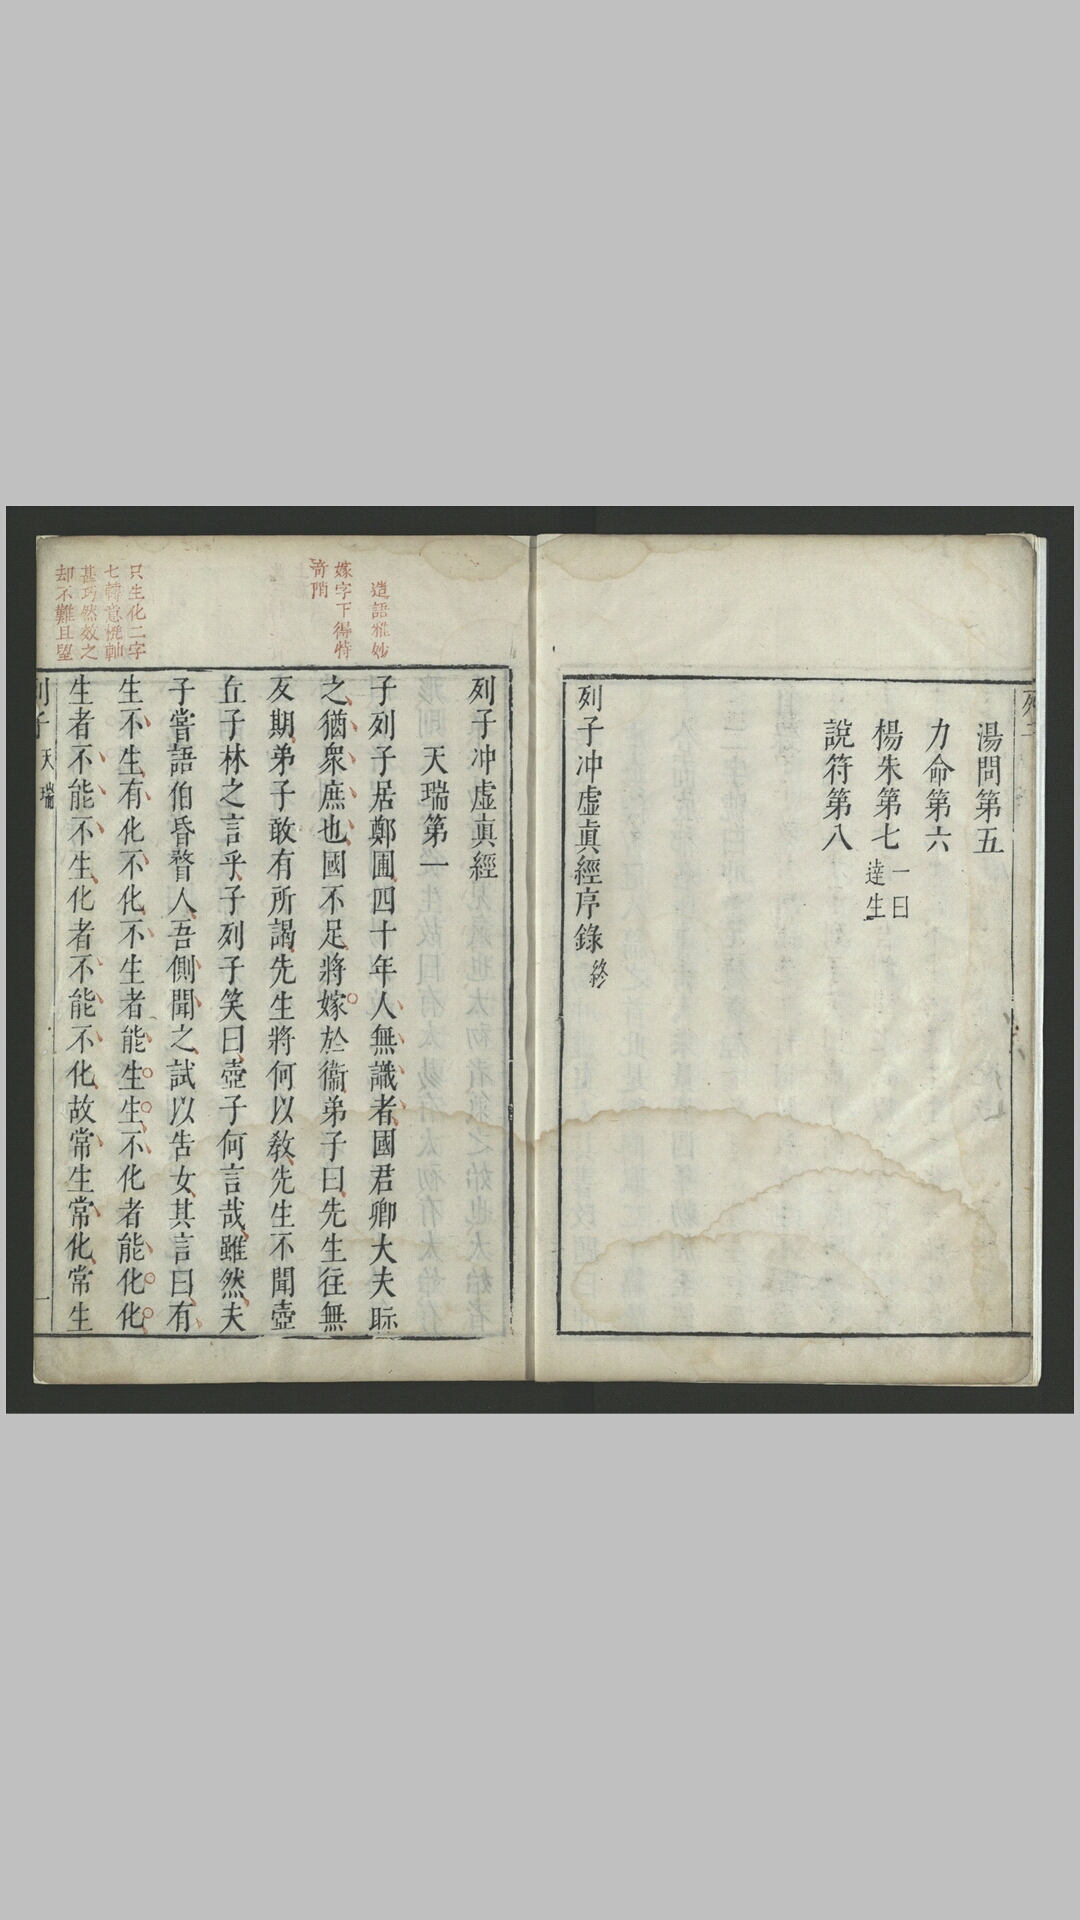 湯問第五
力命第六
楊朱第七 一曰達生
說符第八
列子冲虛眞經序錄 終
造語雅妙
嫁字下得特
奇陗
只生化二字
七轉意
甚巧然效之
却不難且望
列子冲虛眞經
天瑞第一
子列子居鄭圃四十年人無識者國君卿大夫眎
之猶衆庶也國不足將嫁於衞弟子曰先生往無
反期弟子敢有所謁先生將何以敎先生不聞壺
丘子林之言乎子列子笑曰壺子何言哉雖然夫
子嘗語伯昏瞀人吾側聞之試以告女其言曰有
生不生有化不化不生者能生生不化者能化化
生者不能不生化者不能不化故常生常化常生
列子 天瑞 一